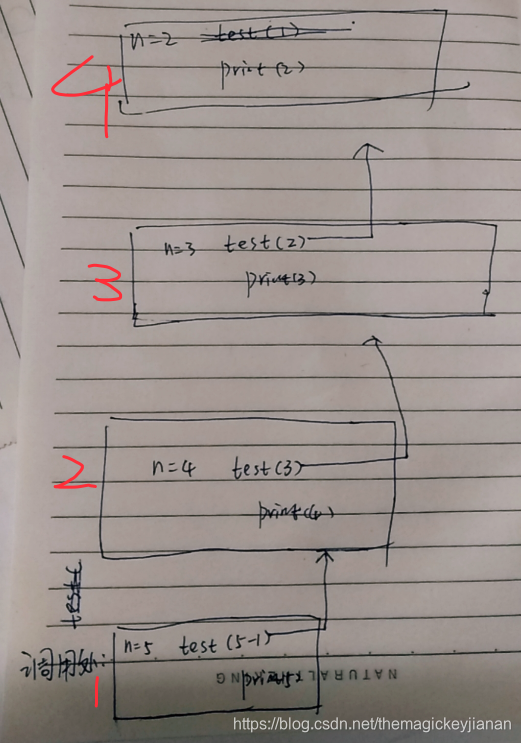 4
n=2 test(1)
print(2)
3
n=3 test(2)
print(3)
2
n=4 test(3)
print(4)
test
调用处:
1
n=5 test(5-1)
print(5)
NATURAL
https://blog.csdn.net/themagickeyjianan